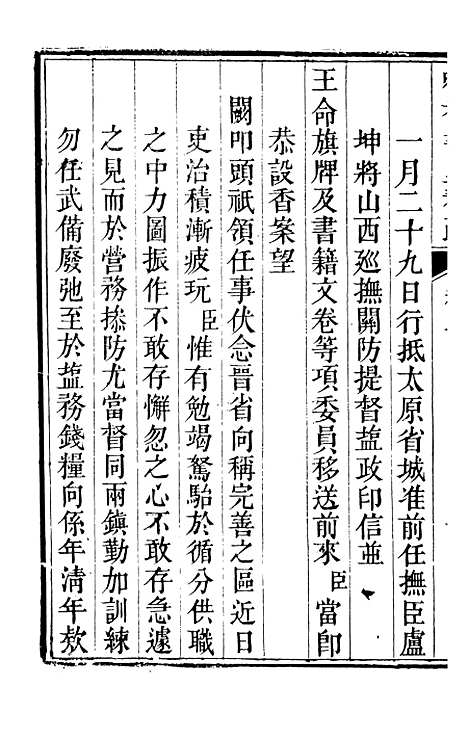 一月二十九日行抵太原省城准前任撫臣盧
坤將山西廵撫關防提督盐政印信並
王命旗牌及書籍文卷等項委員移送前來臣當卽
恭設香案望
闕叩頭祇領任事伏念晉省向稱完善之區近日
吏治積漸疲玩臣惟有勉竭駑駘於循分供職
之中力圖振作不敢存懈忽之心不敢存急遽
之見而於營務摻防尤當督同兩鎮勤加訓練
勿任武備廢弛至於盐務錢糧向係年清年欵